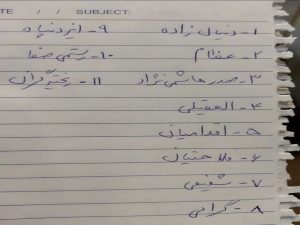 DATE / / SUBJECT:
۱- دنیال زاده
۲- عظام
۳- صدر هاشمی نژاد
۴- العقیلی
۵- اقدامیان
۶- فلاحتیان
۷- شفیعی
۸- گرامی
۹- ایزدپناه
۱۰- رستمی صفا
۱۱-